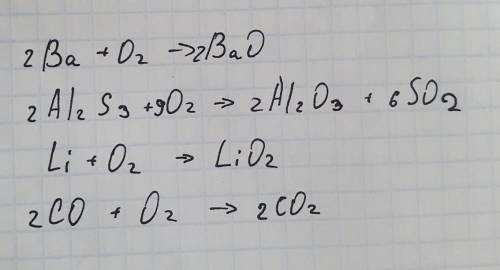 2Ba + O2 → 2BaO
2Al2S3 + 9O2 → 2Al2O3 + 6SO2
Li + O2 → LiO2
2CO + O2 → 2CO2